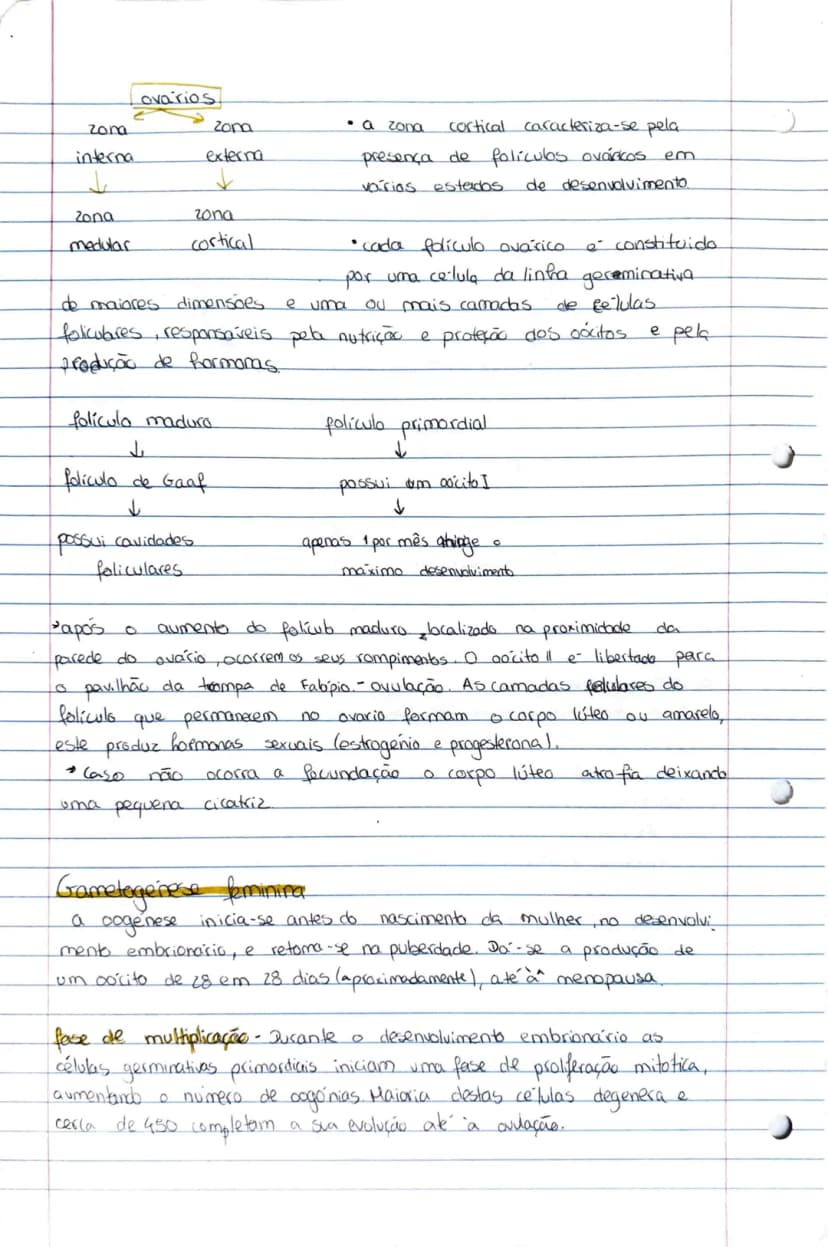 ovários
zona zona
interna externa
zona zona
medular cortical
• a zona cortical caracteriza-se pela
presença de folículos ováricos em
vários estados de desenvolvimento.
• cada folículo ovárico é constituído
por uma célula da linha gereminativa
de maiores dimensões e uma ou mais camadas de células
foliculares, responsáveis pela nutrição e proteção dos oócitos e pela
produção de hormonas.
folículo maduro folículo primordial
↓ ↓
folículo de Gaaf possui um oócito I
↓ ↓
possui cavidades apenas 1 por mês atinge o
foliculares máximo desenvolvimento
• após o aumento do folículo maduro, localizado na proximidade da
parede do ovário, ocorrem os seus rompimentos. O oócito II é libertado para
o pavilhão da trompa de Falópio. - ovulação. As camadas celulares do
folículo que permanecem no ovario formam o corpo lúteo ou amarelo,
este produz hormonas sexuais (estrogénio e progesterona).
• Caso não ocorra a fecundação o corpo lúteo atrofia deixando
uma pequena cicatriz.
Gametogénese feminina
a oogénese inicia-se antes do nascimento da mulher, no desenvolvi
mento embrionário, e retoma-se na puberdade. Dá-se a produção de
um oócito de 28 em 28 dias (aproximadamente), até à menopausa.
fase de multiplicação - Durante o desenvolvimento embrionário as
células germinativas primordiais iniciam uma fase de proliferação mitótica,
aumentando o número de oogónias. Maioria destas células degenera e
cerca de 450 completam a sua evolução até à ovulação.